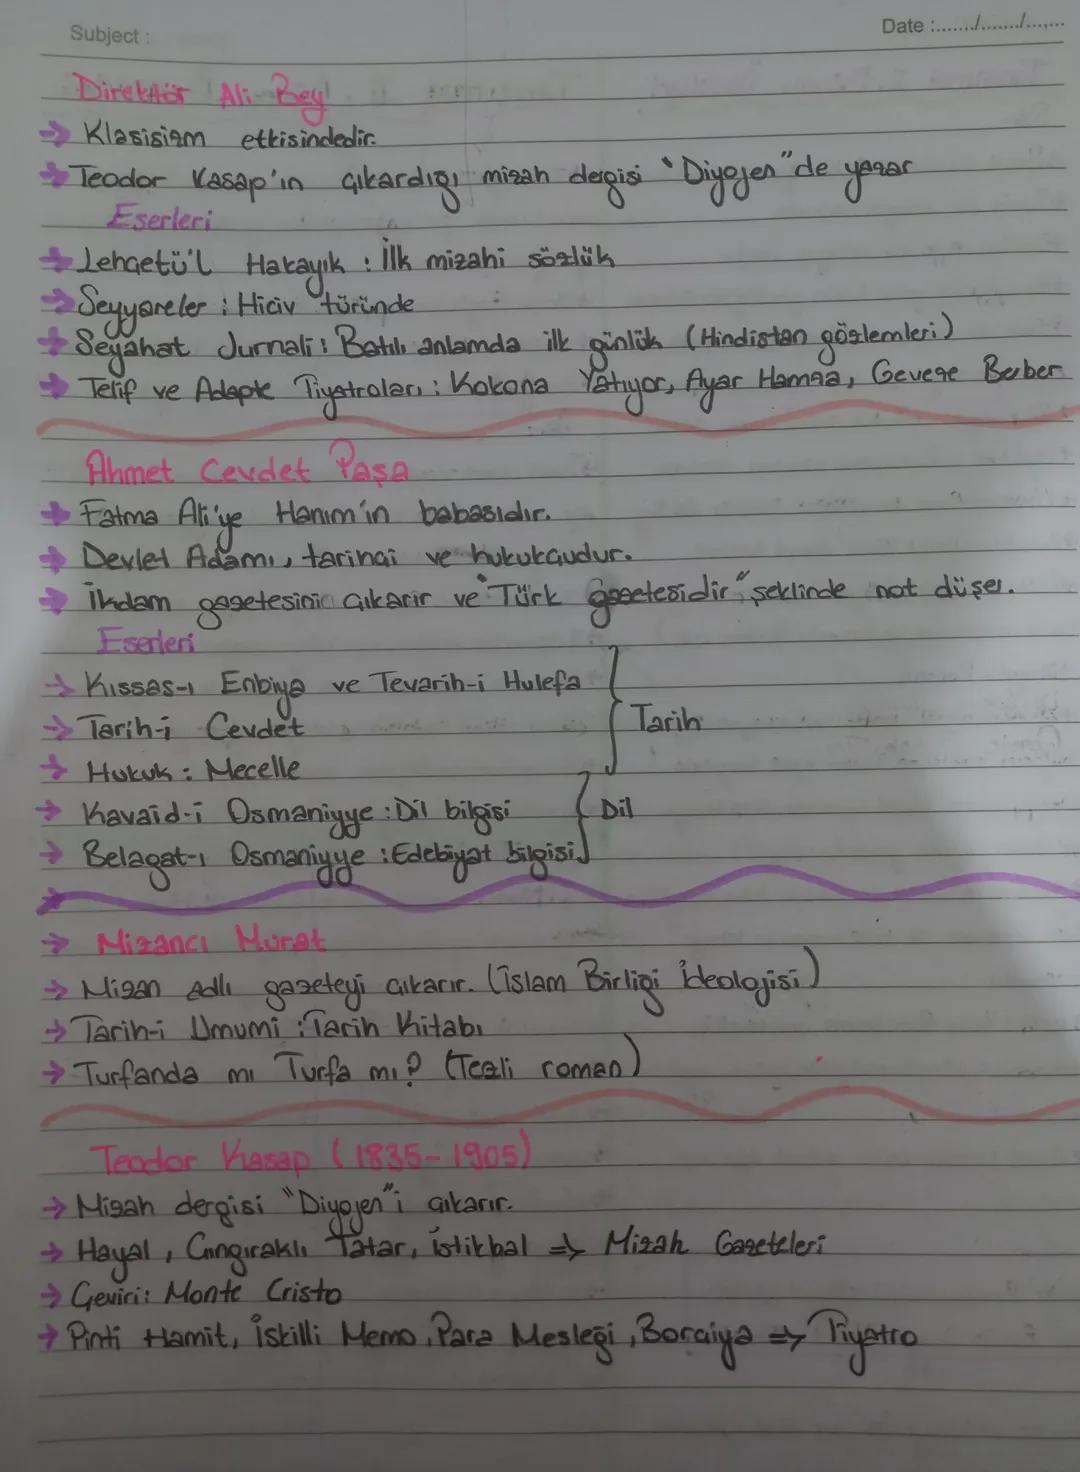 Subject :
Date :......./......./.......
Direktör Ali Bey
→ Klasisizm etkisindedir.
→ Teodor Kasap'ın çıkardığı mizah dergisi "Diyojen"de yazar
Eserleri
→ Lehçetü'l Hakayık : İlk mizahi sözlük
→ Seyyareler : Hiciv türünde
→ Seyahat Jurnali : Batılı anlamda ilk günlük (Hindistan gözlemleri)
→ Telif ve Adapte Tiyatroları : Kokona Yatıyor, Ayar Hamza, Geveze Berber
Ahmet Cevdet Paşa
→ Fatma Ali'ye Hanım'ın babasıdır.
→ Devlet Adamı, tarihçi ve hukukçudur.
→ İkdam gazetesini çıkarır ve "Türk gazetesidir" şeklinde not düşer.
Eserleri
→ Kıssas-ı Enbiya ve Tevarih-i Hulefa
→ Tarih-i Cevdet } Tarih
→ Hukuk : Mecelle
→ Kavaid-i Osmaniyye : Dil bilgisi } Dil
→ Belagat-ı Osmaniyye : Edebiyat bilgisi
→ Mizancı Murat
→ Mizan adlı gazeteyi çıkarır. (İslam Birliği ideolojisi)
→ Tarih-i Umumi : Tarih Kitabı
→ Turfanda mı Turfa mı? (Tezli roman)
Teodor Kasap (1835-1905)
→ Mizah dergisi "Diyojen"i çıkarır.
→ Hayal, Çıngıraklı Tatar, İstikbal => Mizah Gazeteleri
→ Çeviri : Monte Cristo
→ Pinti Hamit, İskilli Memo, Para Mesleği, Borciya => Tiyatro